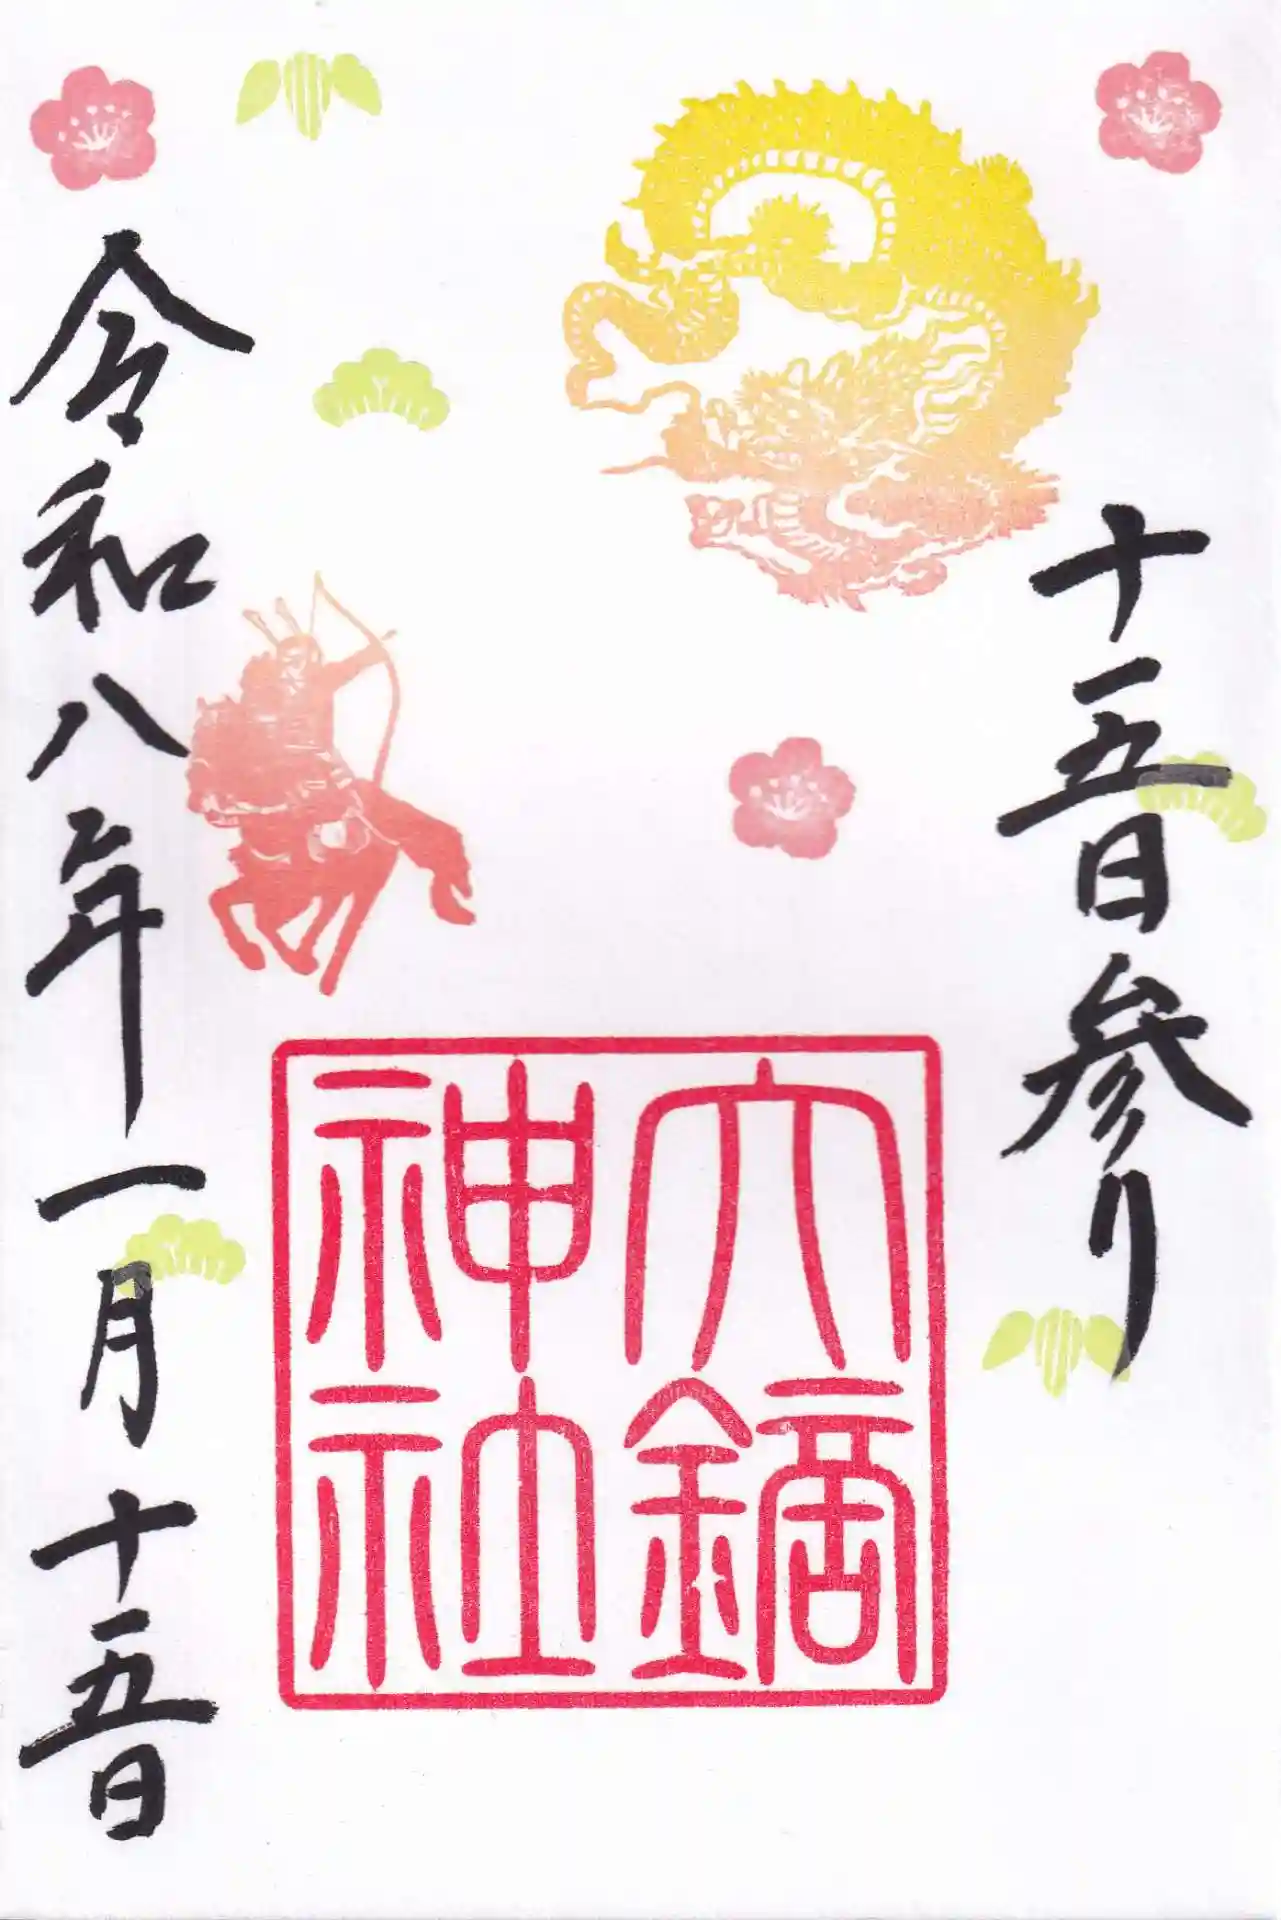 十五日参り
大鏑
神社
令和八年一月十五日